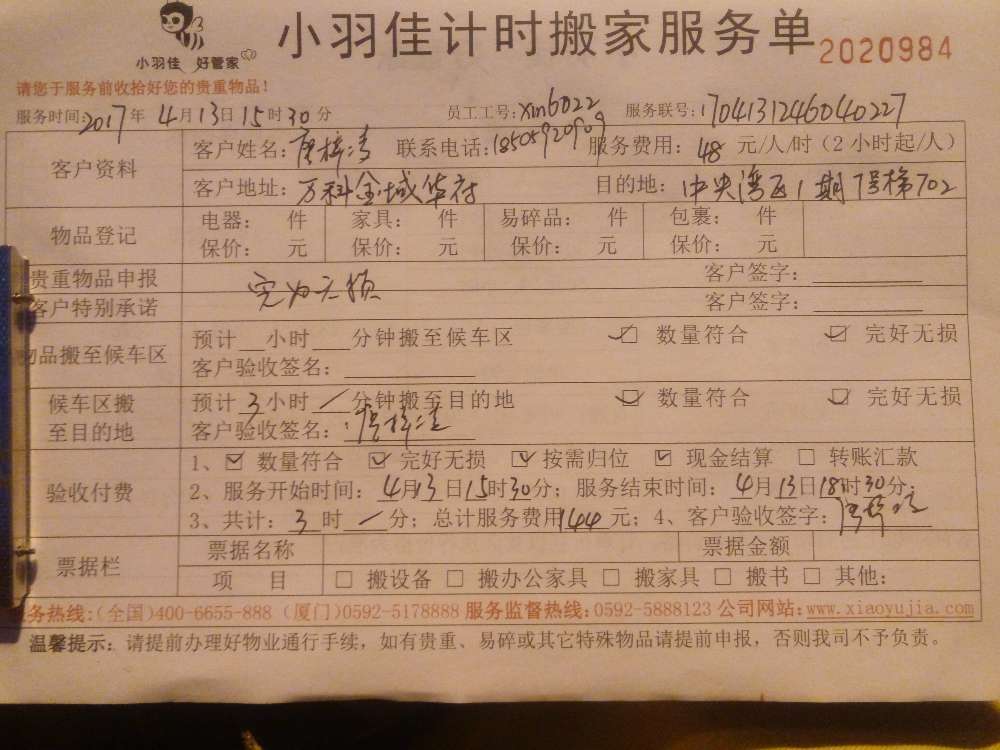 小羽佳 好管家
小羽佳计时搬家服务单 2020984
请您于服务前收拾好您的贵重物品！
服务时间：2017年4月13日15时30分 员工工号：xm6022 服务联号：170413124604 0227
客户资料 客户姓名：唐梓清 联系电话：18505920909 服务费用：48元/人/时（2小时起/人）
客户地址：万科金域华府 目的地：中央湾区1期7号梯702
物品登记 电器： 件 家具： 件 易碎品： 件 包裹： 件
保价： 元 保价： 元 保价： 元 保价： 元
贵重物品申报 客户签字：
客户特别承诺 完好无损 客户签字：
物品搬至候车区 预计 小时 分钟搬至候车区 ☑ 数量符合 ☑ 完好无损
客户验收签名：
候车区搬至目的地 预计3小时/分钟搬至目的地 ☑ 数量符合 ☑ 完好无损
客户验收签名：唐梓清
验收付费 1、☑ 数量符合 ☑ 完好无损 ☑ 按需归位 ☑ 现金结算 □ 转账汇款
2、服务开始时间：4月13日15时30分；服务结束时间：4月13日18时30分；
3、共计：3时/分；总计服务费用144元；4、客户验收签字：
票据栏 票据名称 票据金额
项 目 □ 搬设备 □ 搬办公家具 □ 搬家具 □ 搬书 □ 其他：
务热线：(全国)400-6655-888 (厦门)0592-5178888 服务监督热线：0592-5888123 公司网站：www.xiaoyujia.com
温馨提示：请提前办理好物业通行手续，如有贵重、易碎或其它特殊物品请提前申报，否则我司不予负责。